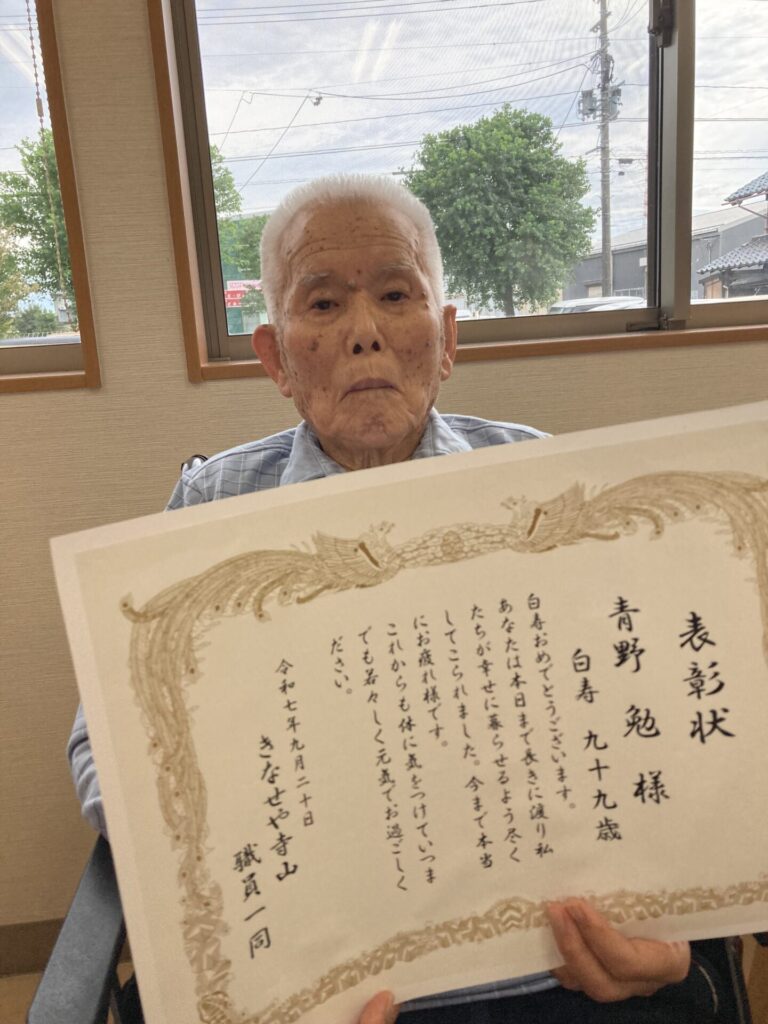 表彰状
青野 勉 様
白寿 九十九歳
白寿おめでとうございます。
あなたは本日まで長きに渡り私
たちが幸せに暮らせるよう尽く
してこられました。今まで本当
にお疲れ様です。
これからも体に気をつけていつま
でも若々しく元気でお過ごしく
ださい。
令和七年九月二十日
きなせや寺山
職員一同